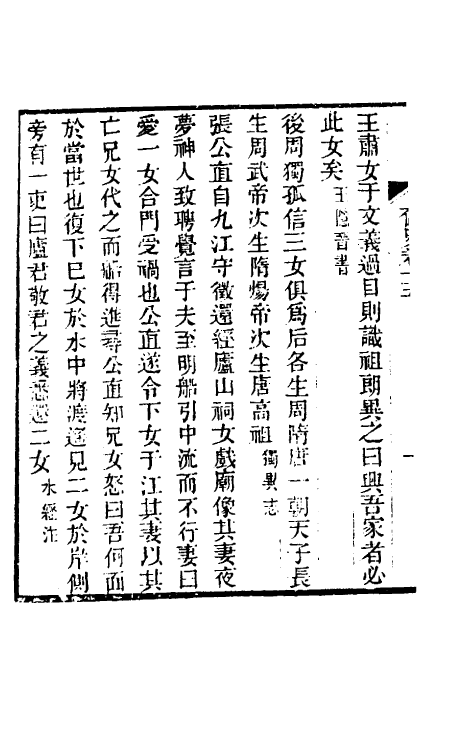 王肅女于文義過目則識祖朗異之曰興吾家者必
此女矣王隱晉書
後周獨孤信三女俱爲后各生周隋唐一朝天子長
生周武帝次生隋煬帝次生唐高祖獨異志
張公直自九江守徵還經廬山祠女戲廟像其妻夜
夢神人致聘覺言于夫至明船引中流而不行妻曰
愛一女合門受禍也公直遂令下女于江其妻以其
亡兄女代之而船得進尋公直知兄女怒曰吾何面
於當世也復下巳女於水中將渡遙見二女於岸側
旁有一吏曰廬君敬君之義悉還二女水經注